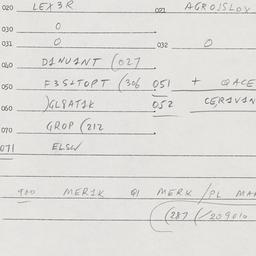 020 LEX3R 021 AGROJSLOV
030 0
031 0 032 0
040 D1NUANT (027
050 F3S+TOPT (306 051 + QACE
060 )GL8AT1K 052 CERIVIN
070 GROP (212
071 ELSW
900 MER1K Q1 MERK /PL MAK
(287 (/209010